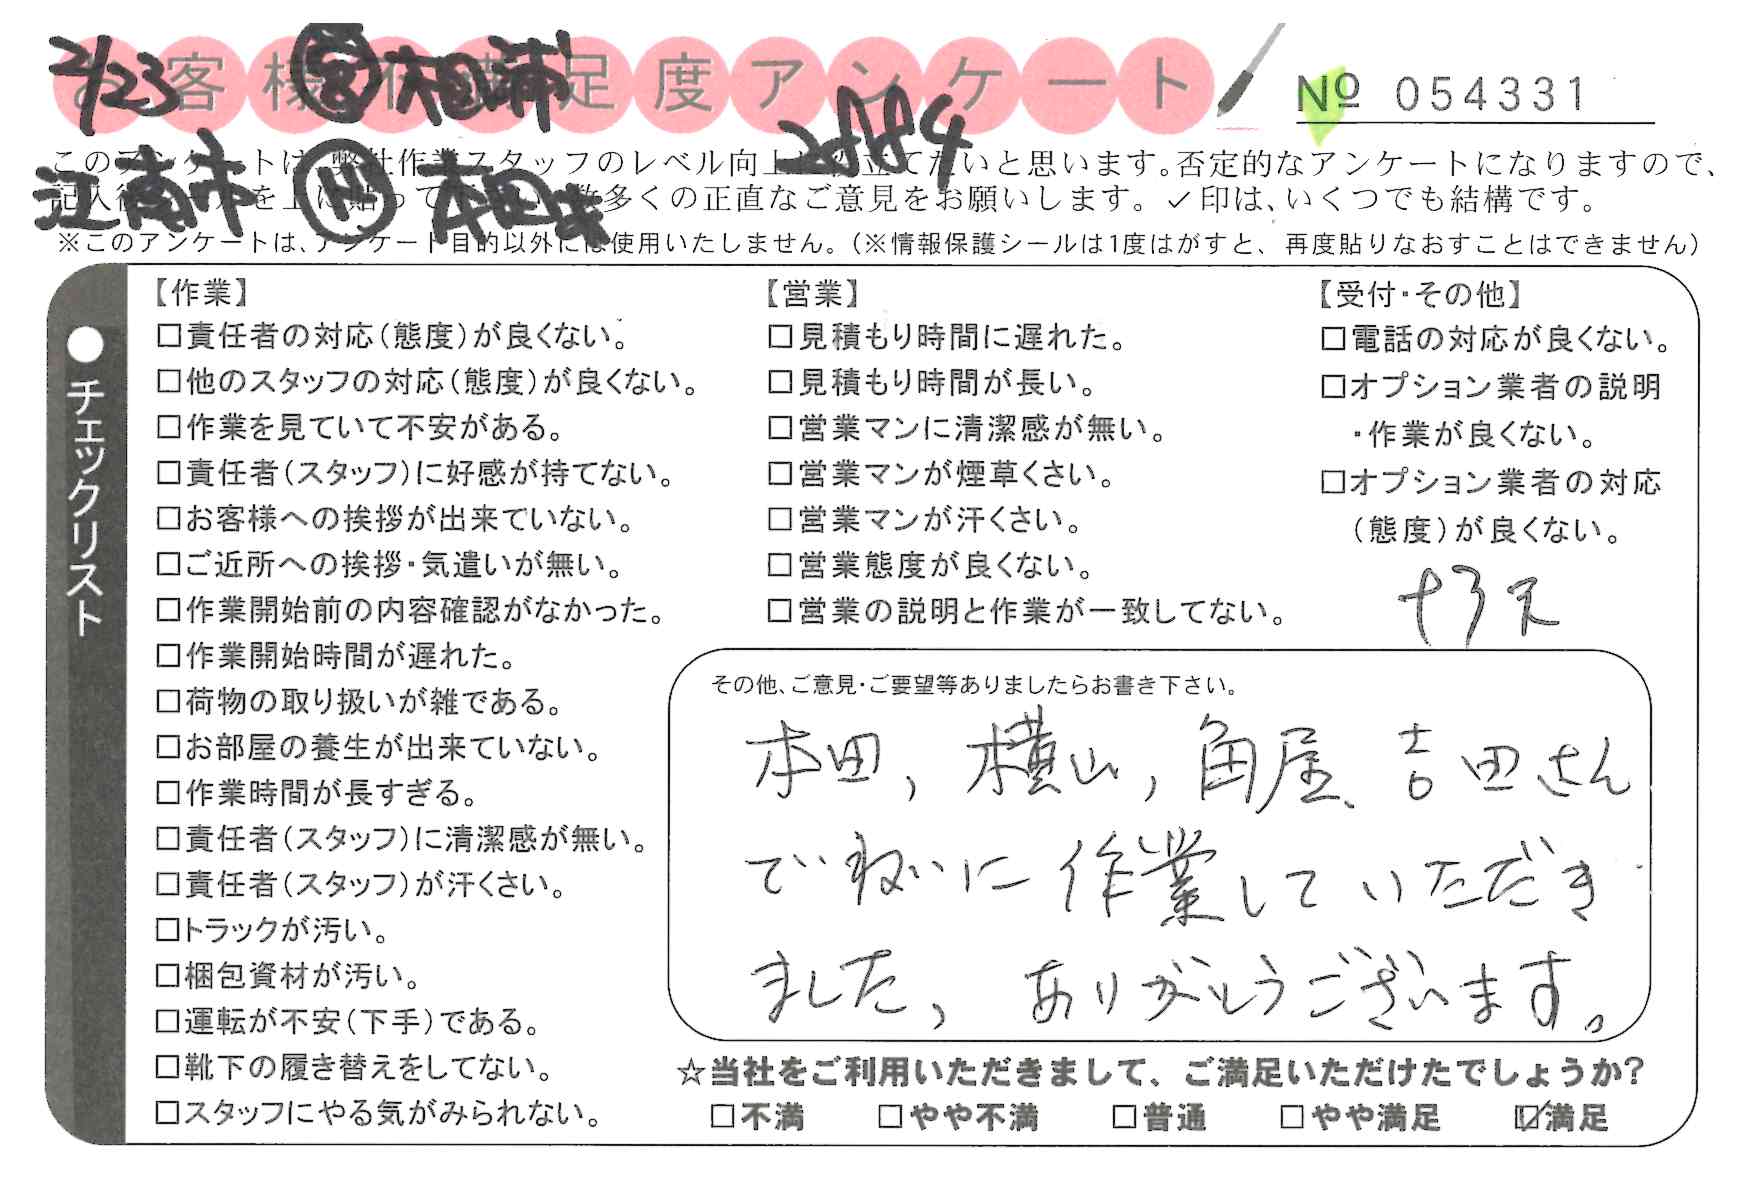 お客様不満足度アンケート
№ 054331
2/23 営 相浦
2884
江南市 本田
このアンケートは、弊社作業スタッフのレベル向上に役立てたいと思います。否定的なアンケートになりますので、
多くの正直なご意見をお願いします。✓印は、いくつでも結構です。
※このアンケートは、アンケート目的以外には使用いたしません。(※情報保護シールは1度はがすと、再度貼りなおすことはできません)
●チェックリスト
【作業】
□責任者の対応(態度)が良くない。
□他のスタッフの対応(態度)が良くない。
□作業を見ていて不安がある。
□責任者(スタッフ)に好感が持てない。
□お客様への挨拶が出来ていない。
□ご近所への挨拶・気遣いが無い。
□作業開始前の内容確認がなかった。
□作業開始時間が遅れた。
□荷物の取り扱いが雑である。
□お部屋の養生が出来ていない。
□作業時間が長すぎる。
□責任者(スタッフ)に清潔感が無い。
□責任者(スタッフ)が汗くさい。
□トラックが汚い。
□梱包資材が汚い。
□運転が不安(下手)である。
□靴下の履き替えをしてない。
□スタッフにやる気がみられない。
【営業】
□見積もり時間に遅れた。
□見積もり時間が長い。
□営業マンに清潔感が無い。
□営業マンが煙草くさい。
□営業マンが汗くさい。
□営業態度が良くない。
□営業の説明と作業が一致してない。
【受付・その他】
□電話の対応が良くない。
□オプション業者の説明
・作業が良くない。
□オプション業者の対応
(態度)が良くない。
その他、ご意見・ご要望等ありましたらお書き下さい。
本田, 横山, 角屋、吉田さん
でいねいに作業していただき
ました, ありがとうございます。
☆当社をご利用いただきまして、ご満足いただけたでしょうか?
□不満 □やや不満 □普通 □やや満足 ☑満足